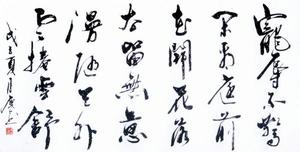 寵辱不驚
閒看庭前
花開花落
去留無意
漫隨天外
雲捲雲舒
戊子夏月